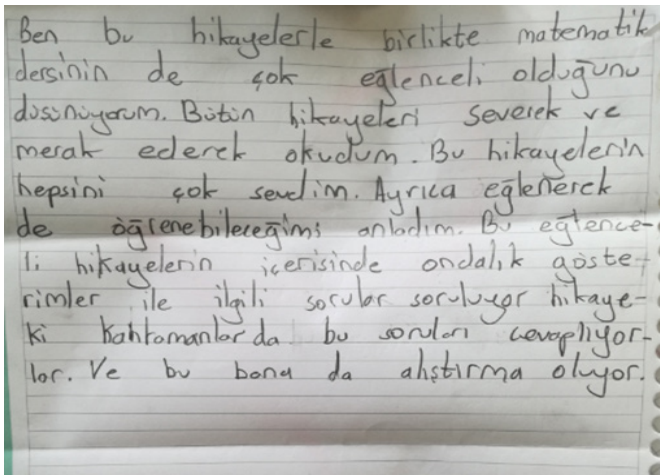 Ben bu hikayelerle birlikte matematik
dersinin de çok eğlenceli olduğunu
düşünüyorum. Bütün hikayeleri severek ve
merak ederek okudum. Bu hikayelerin
hepsini çok sevdim. Ayrıca eğlenerek
de öğrenebileceğimi anladım. Bu eğlence-
li hikayelerin içerisinde ondalık göste-
rimler ile ilgili sorular soruluyor hikaye-
ki kahramanlar da bu soruları cevaplıyor-
lar. Ve bu bana da alıştırma oluyor.